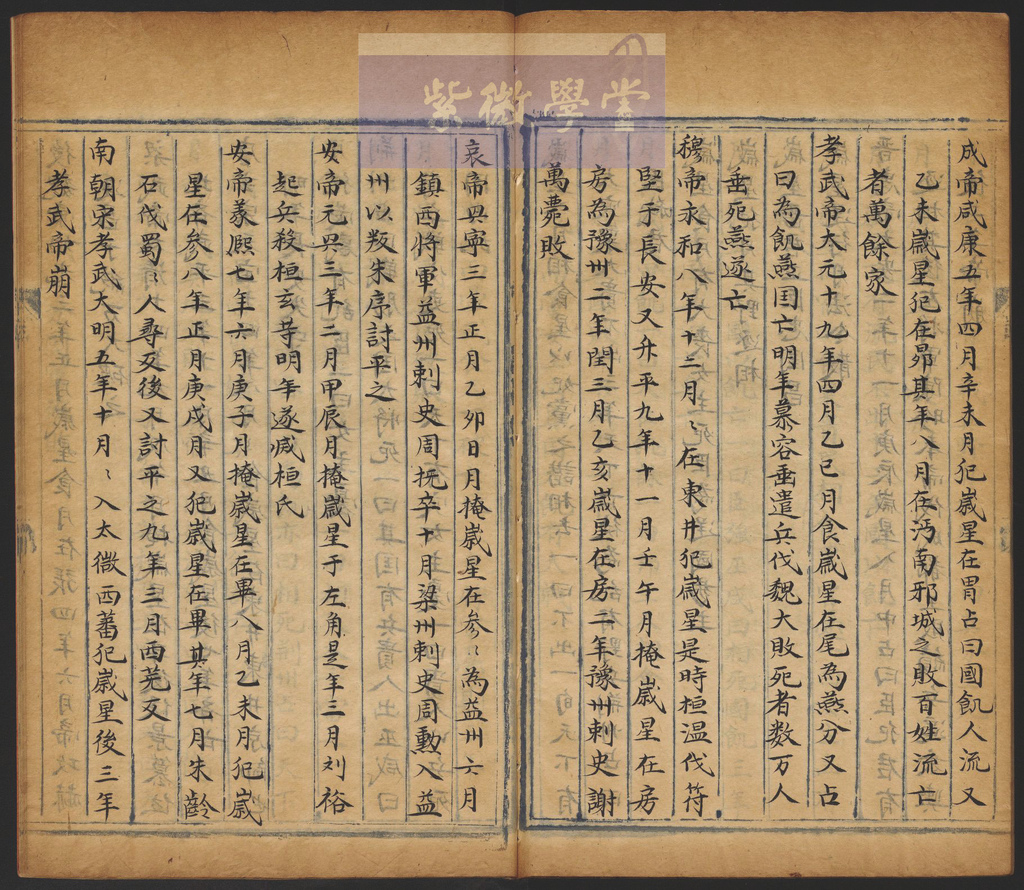 紫微學堂
成帝咸康五年四月辛未月犯嵗星在胃占曰國飢人流又
乙未嵗星犯在昴其年八月在沔南邪城之敗百姓流亡
者萬餘家
孝武帝大元十九年四月乙巳月食嵗星在尾為燕分又占
曰為飢燕国亡明年慕容垂遣兵伐魏大敗死者数万人
垂死燕遂亡
穆帝永和八年十二月〻在東井犯嵗星是時桓温伐苻
堅于長安又升平九年十一月壬午月掩嵗星在房
房為豫州二年閏三月乙亥嵗星在房二年豫州刺史謝
萬薨敗
哀帝具寧三年正月乙卯日月掩嵗星在参〻為益州六月
鎮西將軍益州刺史周抚卒十月梁州刺史周勲入益
州以叛朱序討平之
安帝元具三年二月甲辰月掩嵗星于左角是年三月刘裕
起兵殺桓玄䓁明年遂㓕桓氏
安帝義熈七年六月庚子月掩嵗星在畢八月乙未月犯嵗
星在参八年正月庚戌月又犯嵗星在畢其年七月朱齡
石伐蜀〻人尋反後又討平之九年三月西羌反
南朝宋孝武大明五年十月〻入太微西蕃犯嵗星後三年
孝武帝崩